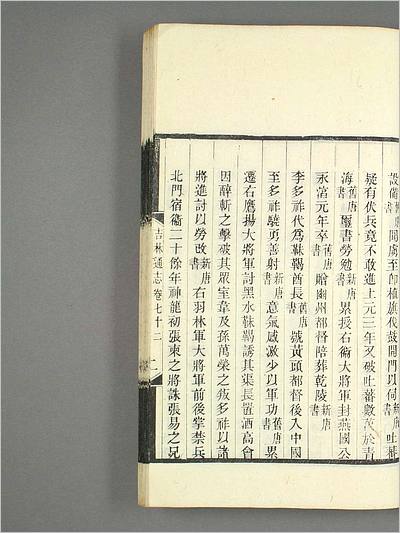 設備舊唐書聞虜至卽植旗伐鼓開門以伺新唐書吐蕃
疑有伏兵竟不敢進上元三年又破吐蕃數萬於青
海舊唐書璽書勞勉新唐書累授右衛大將軍封燕國公
永湻元年卒舊唐書贈幽州都督陪葬乾陵新唐書
李多祚代爲靺鞨酋長舊唐書號黃頭都督後入中國
至多祚驍勇善射新唐書意氣感激少以軍功舊唐書累
遷右鷹揚大將軍討黑水靺鞨誘其渠長置酒高會
因醉斬之擊破其眾室韋及孫萬榮之叛多祚以諸
將進討以勞改新唐書右羽林軍大將軍前後掌禁兵
北門宿衛二十餘年神龍初張柬之將誅張易之兄
吉林通志卷七十二 二